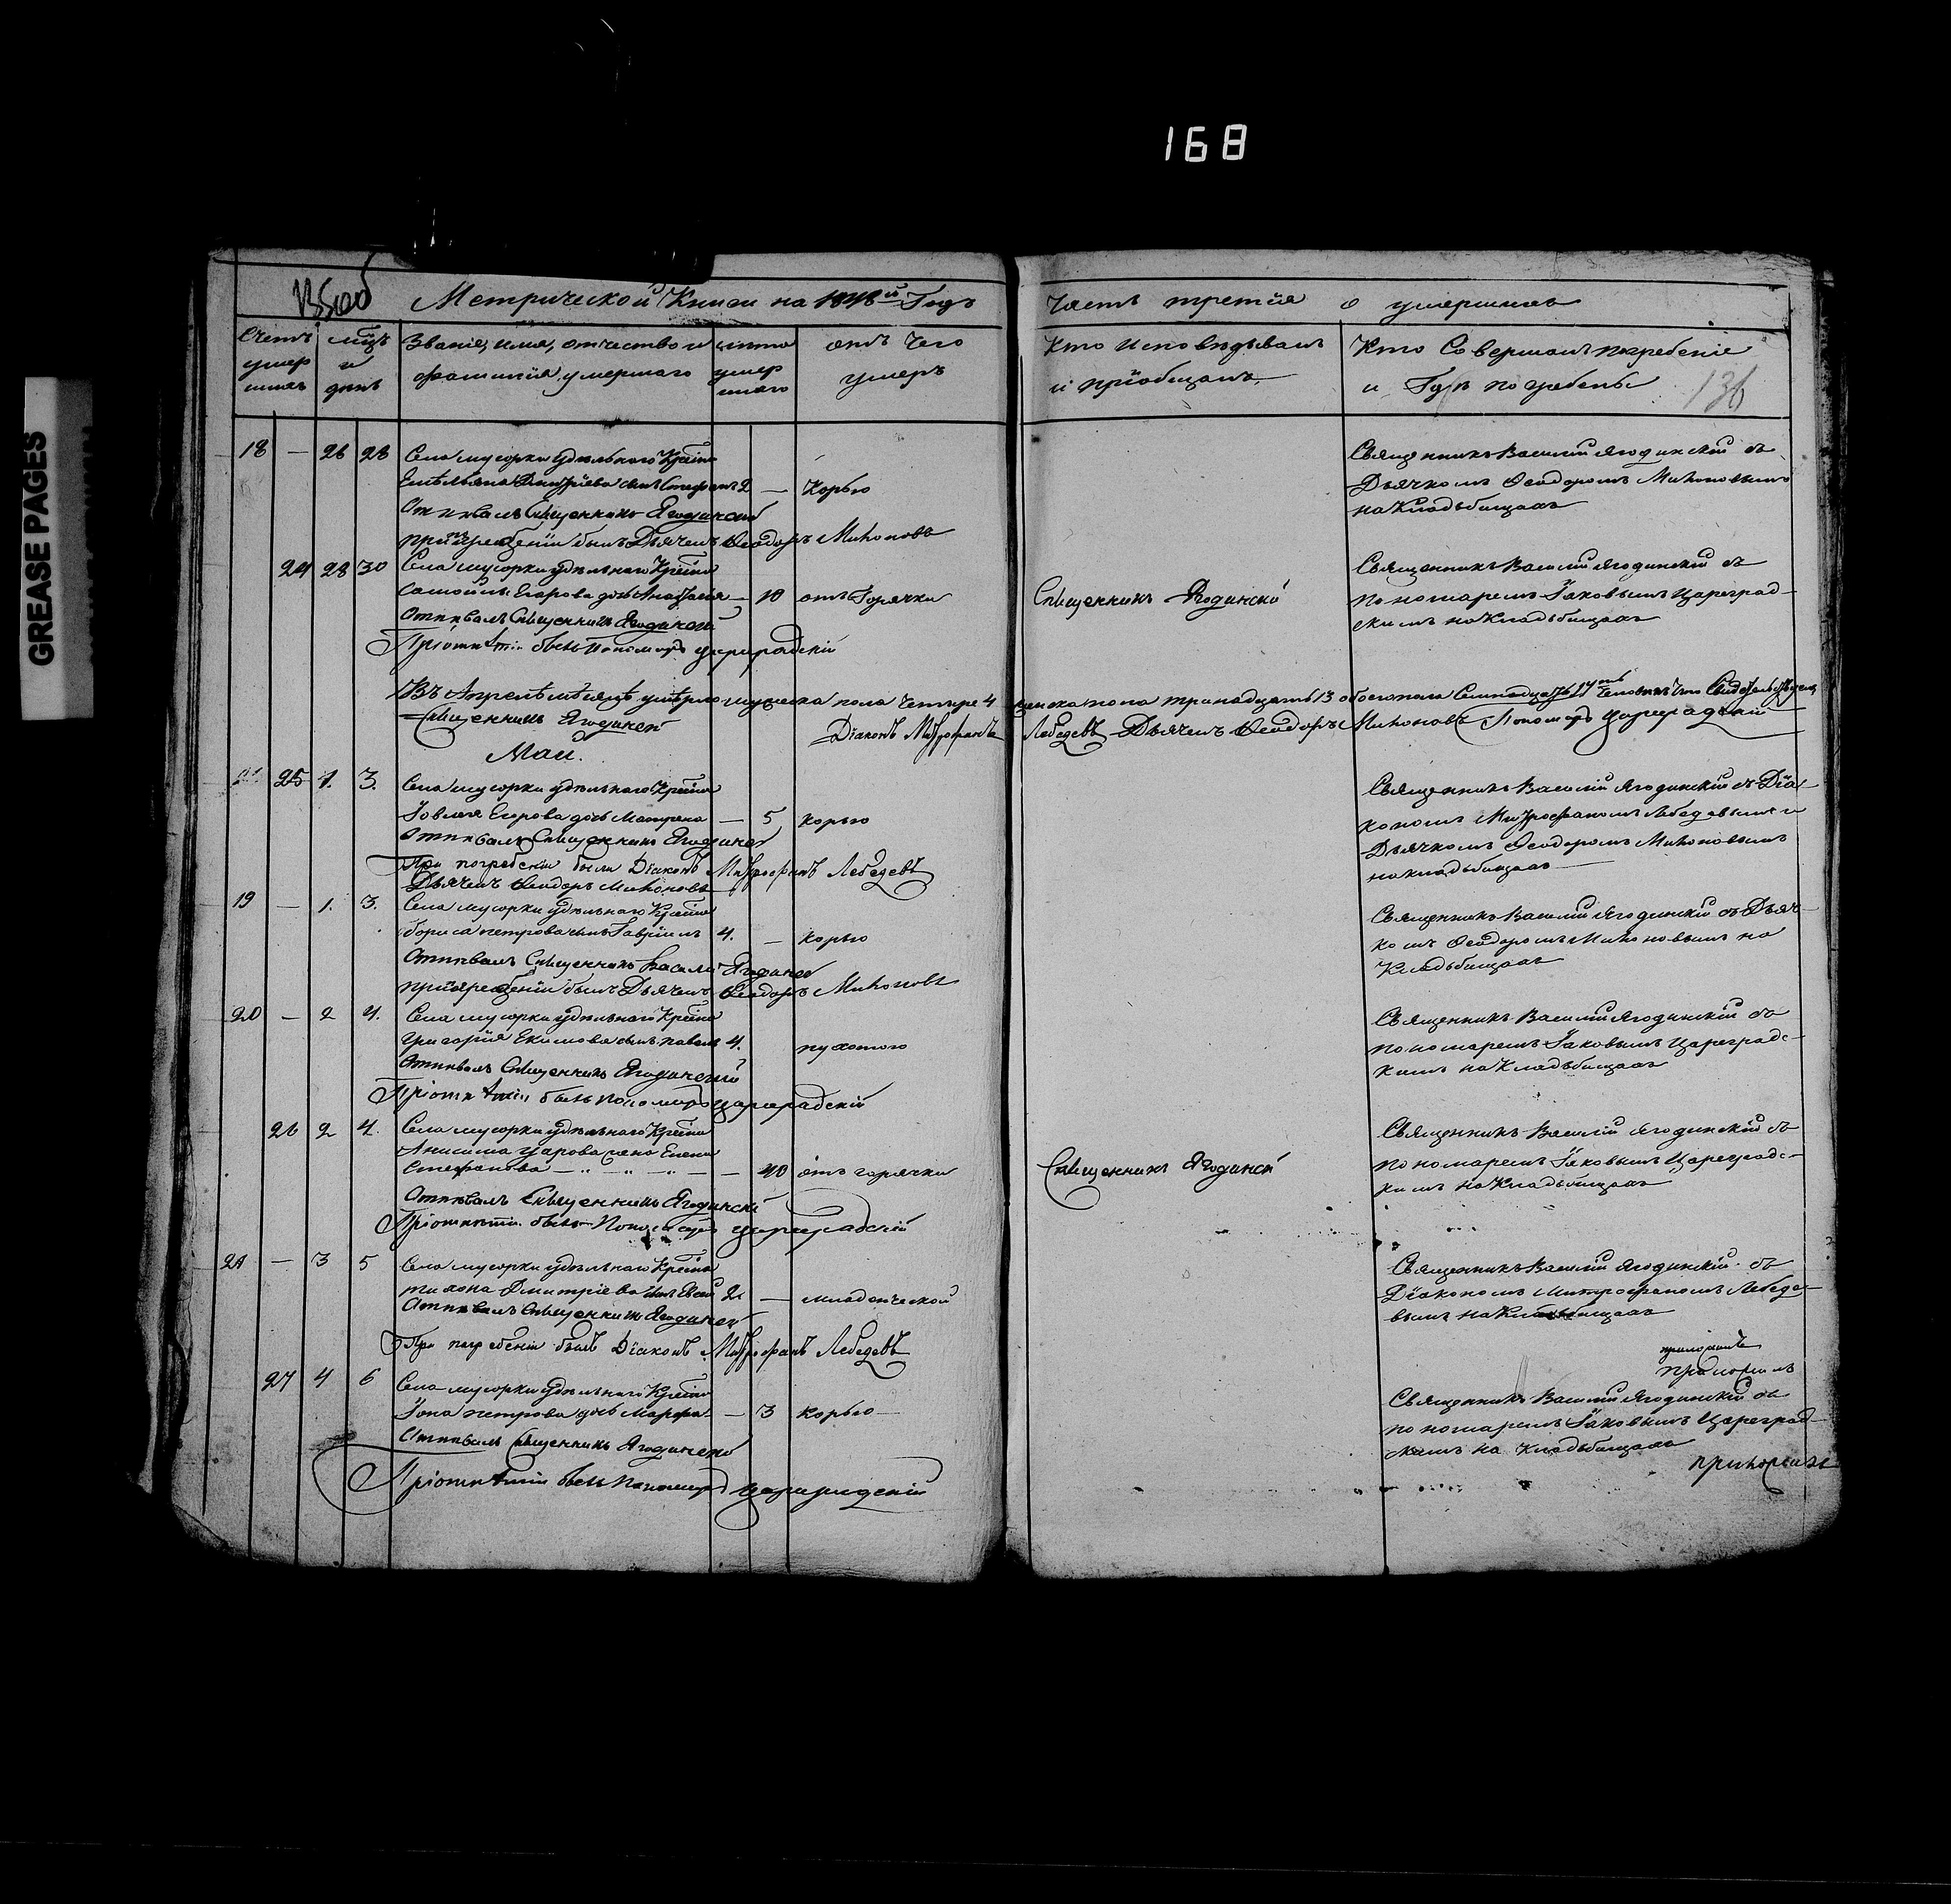 168
GREASE PAGES
Метрической Книги на 1848й Годъ
Часть третія о умершихъ
136
Счетъ умер шихъ
мцъ и день
Званіе, имя, отчество и фамилія умершаго
лѣта умер шаго
отъ чего умеръ
Кто Исповѣдывалъ и пріобщалъ
Кто Совершалъ погребеніе и Гдѣ погребены
18 — 26 28 Села мусорки удѣльнаго Крестна
Емельяна Дмитріева сынъ Стефанъ 2 — Корью
Отпѣвалъ Священникъ Ягодинскій
при погребеніи былъ Дьячекъ Ѳеодоръ Михоновъ
Священникъ Василій Ягодинскій съ
Дьячкомъ Ѳеодоромъ Михоновымъ
на Кладьбищахъ
24 28 30 Села мусорки удѣльнаго Крестна
Самойлы Егорова дочь Анастасія — 10 отъ Горячки
Отпѣвалъ Священникъ Ягодинскій
При отпѣтіи былъ Пономарь Цареградскій
Священникъ Ягодинскій
Священникъ Василій Ягодинскій съ
пономаремъ Іаковымъ Цареград-
скимъ на Кладьбищахъ
Въ Апрелѣ мѣсяцѣ умѣрло мужеска пола Четыре 4 женска пола тринадцать 13 обоего пола Семнадцать 17 Человѣкъ Что Свидетельствуемъ
Священникъ Ягодинскій
Діаконъ Митрофанъ Лебедевъ Дьячекъ Ѳеодоръ Михоновъ Пономарь Цареградскій
Маи.
25 1. 3. Села мусорки удѣльнаго Крестна
Іовлея Егорова дочь Матрена — 5 корью
Отпѣвалъ Священникъ Ягодинск
При погребеніи были Діаконъ Митрофанъ Лебедевъ
Дьячекъ Ѳеодоръ Михоновъ
Священникъ Василій Ягодинскій съ Діа-
кономъ Митрофаномъ Лебедевымъ и
Дьячкомъ Ѳеодоромъ Михоновымъ
на кладьбищахъ
19 — 1. 3. Села мусорки удѣльнаго Крестна
Бориса петрова сынъ Гавріилъ 4. — корью
Отпѣвалъ Священникъ Василій Ягодинск
при погребеніи былъ Дьячекъ Ѳеодоръ Михоновъ
Священникъ Василій Ягодинскій съ Дьяч-
комъ Ѳеодоромъ Михоновымъ на
Кладьбищахъ
20 — 2 4. Села мусорки удѣльнаго Крестна
Григорія Екимова сынъ павелъ 4. пухотою
Отпѣвалъ Священникъ Ягодинскій
При отпѣтіи былъ пономарь Цареградскій
Священникъ Василій Ягодинскій съ
пономаремъ Іаковымъ Цареградс-
кимъ на Кладьбищахъ
26 2 4. Села мусорки удѣльнаго Крестна
Анисима Уарова жена Елена
Стефанова — 40 отъ горячки
Отпѣвалъ Священникъ Ягодински
При отпѣтіи былъ Пономарь Цареградскій
Священникъ Ягодинск
Священникъ Василій Ягодинскій съ
пономаремъ Іаковымъ Цареградс-
кимъ на Кладьбищахъ
21 — 3 5 Села мусорки удѣльнаго Крестна
тихона Дмитріева сынъ 2. — младенческой
Отпѣвалъ Священникъ Ягодинск
При погребеніи былъ Діаконъ Митрофанъ Лебедевъ
Священникъ Василій Ягодинскій съ
Діакономъ Митрофаномъ Лебеде-
вымъ на Кладьбищахъ
27 4 6 Села мусорки удѣльнаго Крестна
Іона петрова дочь Марфа — 3 корью
Отпѣвалъ Священникъ Ягодинскій
При отпѣтіи былъ Пономарь Цареградскій
Священникъ Василій Ягодинскій съ
пономаремъ Іаковымъ Цареград-
скимъ на Кладьбищахъ